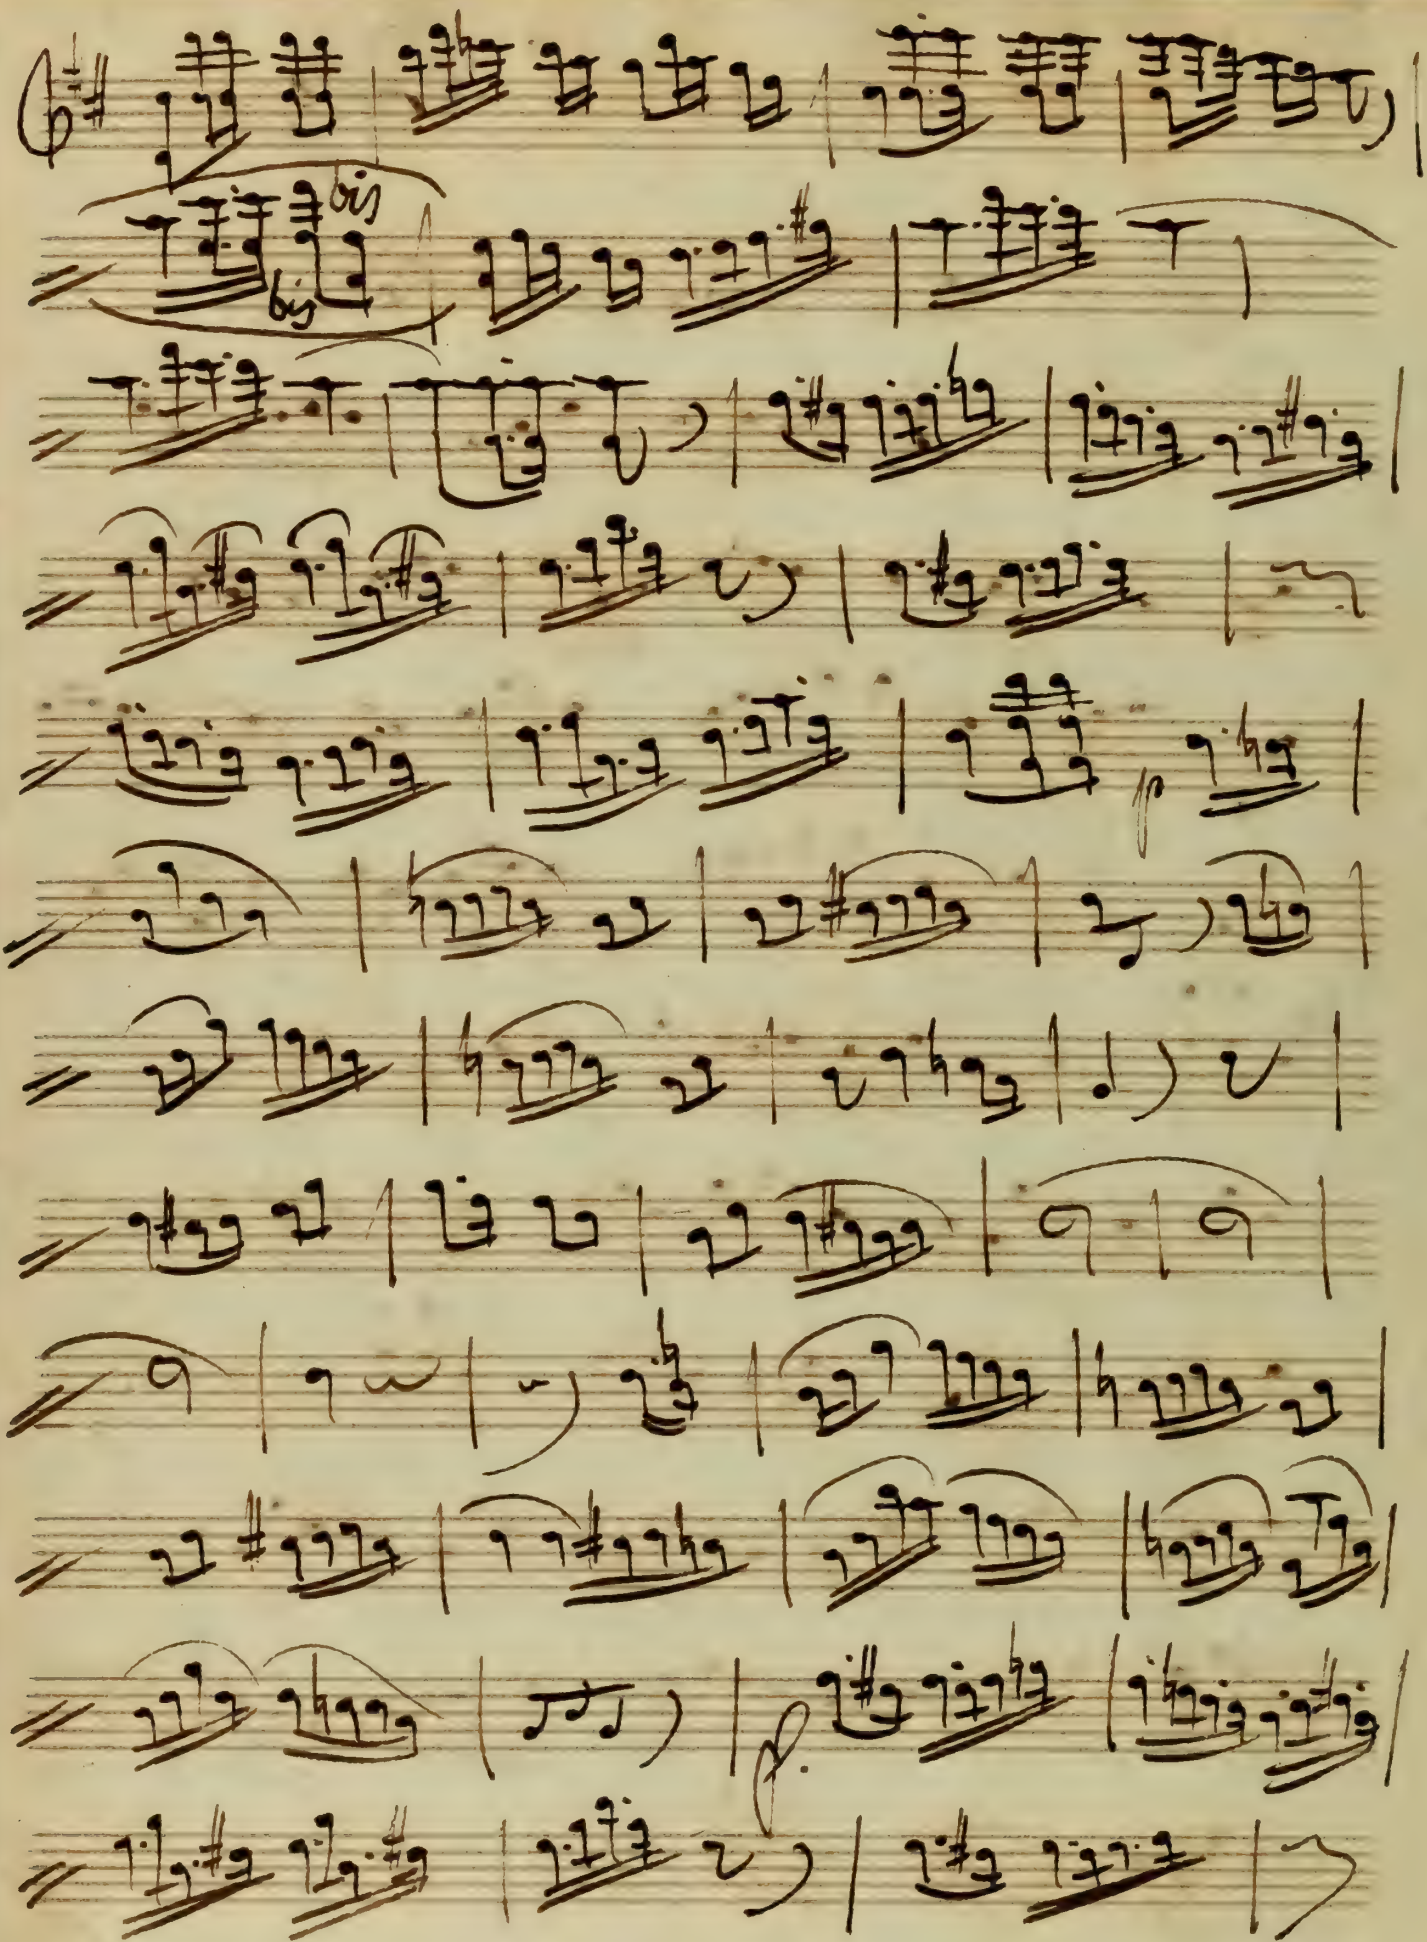 bis
bis
p
f.